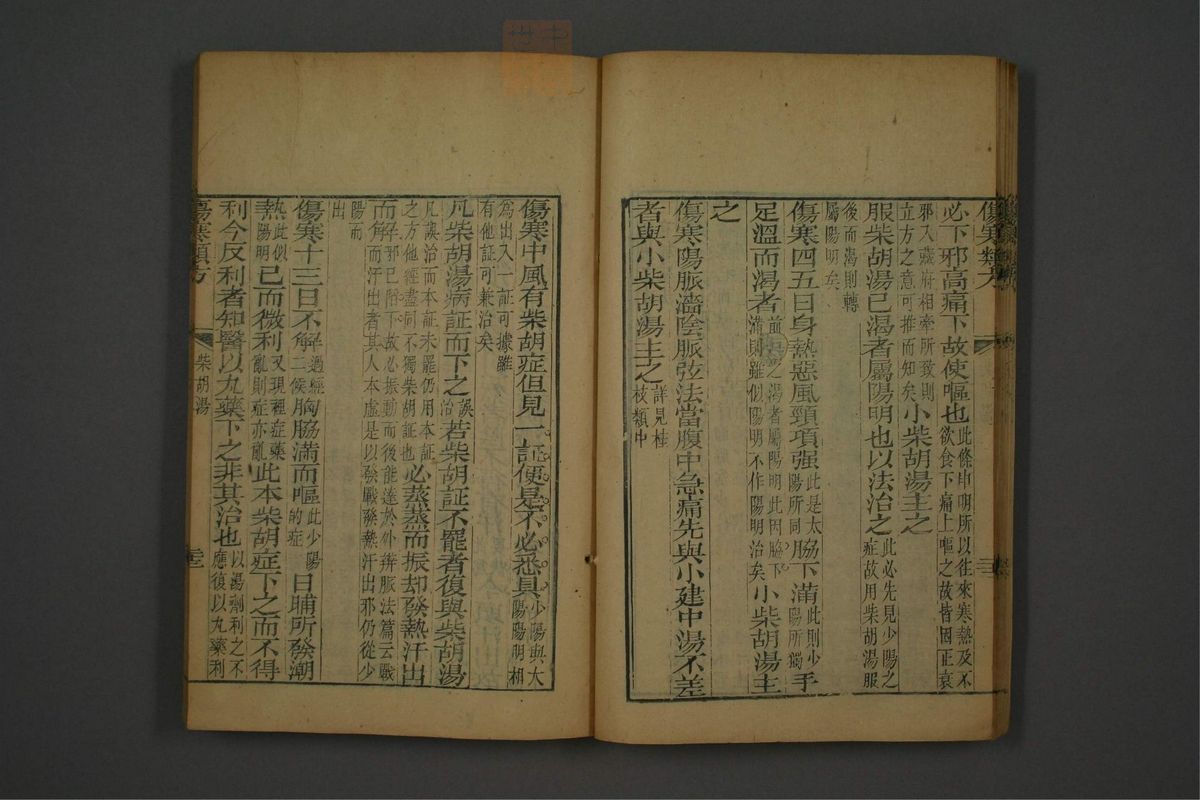 必下邪高痛下故使嘔也此條申明所以往來寒熱及不欲食下痛上嘔之故皆因正衰
邪入臟府相牽所致則立方之意可推而知矣小柴胡湯主之
服柴胡湯已渴者屬陽明也以法治之此必先見少陽之症故用柴胡湯服
後而渴則轉屬陽明矣
傷寒四五日身熱惡風頸項强此是太陽所同脇下滿此則少陽所獨手
足溫而渴者前條之湯者屬陽明此因脇下滿則雖似陽明不作陽明治矣小柴胡湯主
之
傷寒陽脈濇陰脈弦法當腹中急痛先與小建中湯不差
者與小柴胡湯主之詳見桂枝類中
傷寒中風有柴胡症但見一証便是不必悉具少陽與太陽陽明相
為出入一証可據雖有他証可兼治矣
凡柴胡湯病証而下之誤治若柴胡証不罷者復與柴胡湯
凡誤治而本証未罷仍用本証之方他經盡同不獨柴胡証也必蒸蒸而振却發熱汗出
而解邪已陷下故必振動而後能達於外辨脈法篇云戰而汗出者其人本虛是以發戰發熱汗出邪仍從少
陽而出
傷寒十三日不解過經二候胸脇滿而嘔此少陽的症日晡所發潮
熱此似陽明已而微利又現裡症藥亂則症亦亂此本柴胡症下之而不得
利今反利者知醫以丸藥下之非其治也以湯劑利之不應復以丸藥利
傷寒類方
柴胡湯